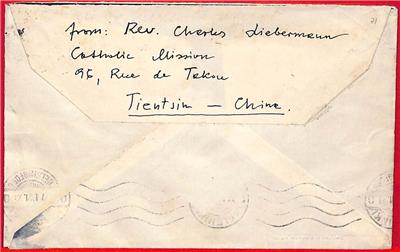 from: Rev. Charles Liebermann
Catholic Mission
96, Rue de Takou
Tientsin — China.